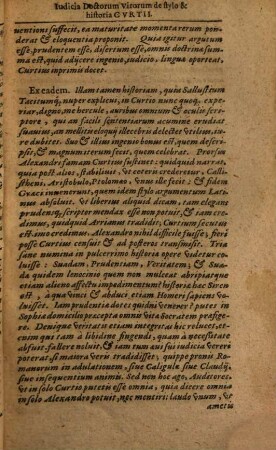 Iudicia Doctorum Virorum de stylo &
historia CVRTII.
uentionis suffecit, ea maturitate momenta rerum pon-
derat & eloquentia proponit. Quia igitur argutum
esse, prudentem esse, disertum esse, omnis doctrina sum-
ma est, quid adijcere ingenio, judicio, lingua oporteat,
Curtius inprimis docet.
Ex eadem. Illam tamen historiam, quia Sallusteum
Tacitumq́, super explicui, in Curtio nunc quoq́. experiar, digna, me hercule, auribus omnium & oculis
opus: quia an facili sententiarum acumine erudiat
suauius, an melliti eloquij illecebris delectet vtilius, iu-
re dubites. Suo & illius ingenio bonus est, quem
describit, & magnum rerum fuscat, quem celebrat. Prorsus
Alexandri famam Curtius sustinet: quidquid narrat,
quia post alios, stabiliuit, vt ceteri crederetur, Calli-
stheni, Aristobulo, Ptolomæo, vnus ille fecit: & fidem
Græcis inuenerunt, quem idem stylo argumentum La-
tinus absoluit. Vt liberius aliquid dicam, tam elegans
prudensq́, scriptor mendax esse non potuit, & tam cre-
dimus, quidquid Arrianus tradidit, Curtium secutus
est ante credimus. Alexandro nihil difficile fuisse, per se
posse Curtius censuit & ad posteros transmisit. Tria
sane numina in pulcerrimo historia opere videor mihi
videre: Suadam, Prudentiam, Veritatem; & Sua-
da quidem lenocinio quem non mulceat abripiatque
etiam alieno affectu impedimentum? historiæ hac Siren
est, a qua vinci & abduci etiam Homeri sapiens vo-
luisset. Iam prudentia docet quid ni veneror? potest in
Sophia domicilio præcepta omnis vita Socratem præfige-
re. Denique veritatis etiam integritas hic relucet, et-
cum tantum à libidine fingendi, quam à necessitate
absuit. fallere noluit & iam tum aui sui iudicia vereri
poterat, si maiora veris tradidisset; quippe pronis Ro-
manorum in adulationem, siue Caligulæ siue Claudij,
siue insequentium animis. Sed non hoc ago, Auditores,
vt in solo Curtio putetis esse omnia, quia dicere omnia
in solo Alexandro potuit, nec mentiri: laudo vnum, &
ametis